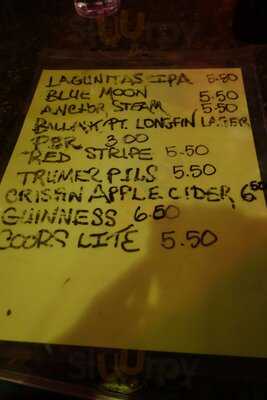 SLUURPY
LAGUNITAS IPA 5.50
BLUE MOON 5.50
ANCHOR STEAM 5.50
BALLAST PT. LONGFIN LAGER
PBR 3.00
RED STRIPE 5.50
TRUMER PILS 5.50
CRISPIN APPLE CIDER 6.50
GUINNESS 6.50
COORS LITE 5.50
sluurpy